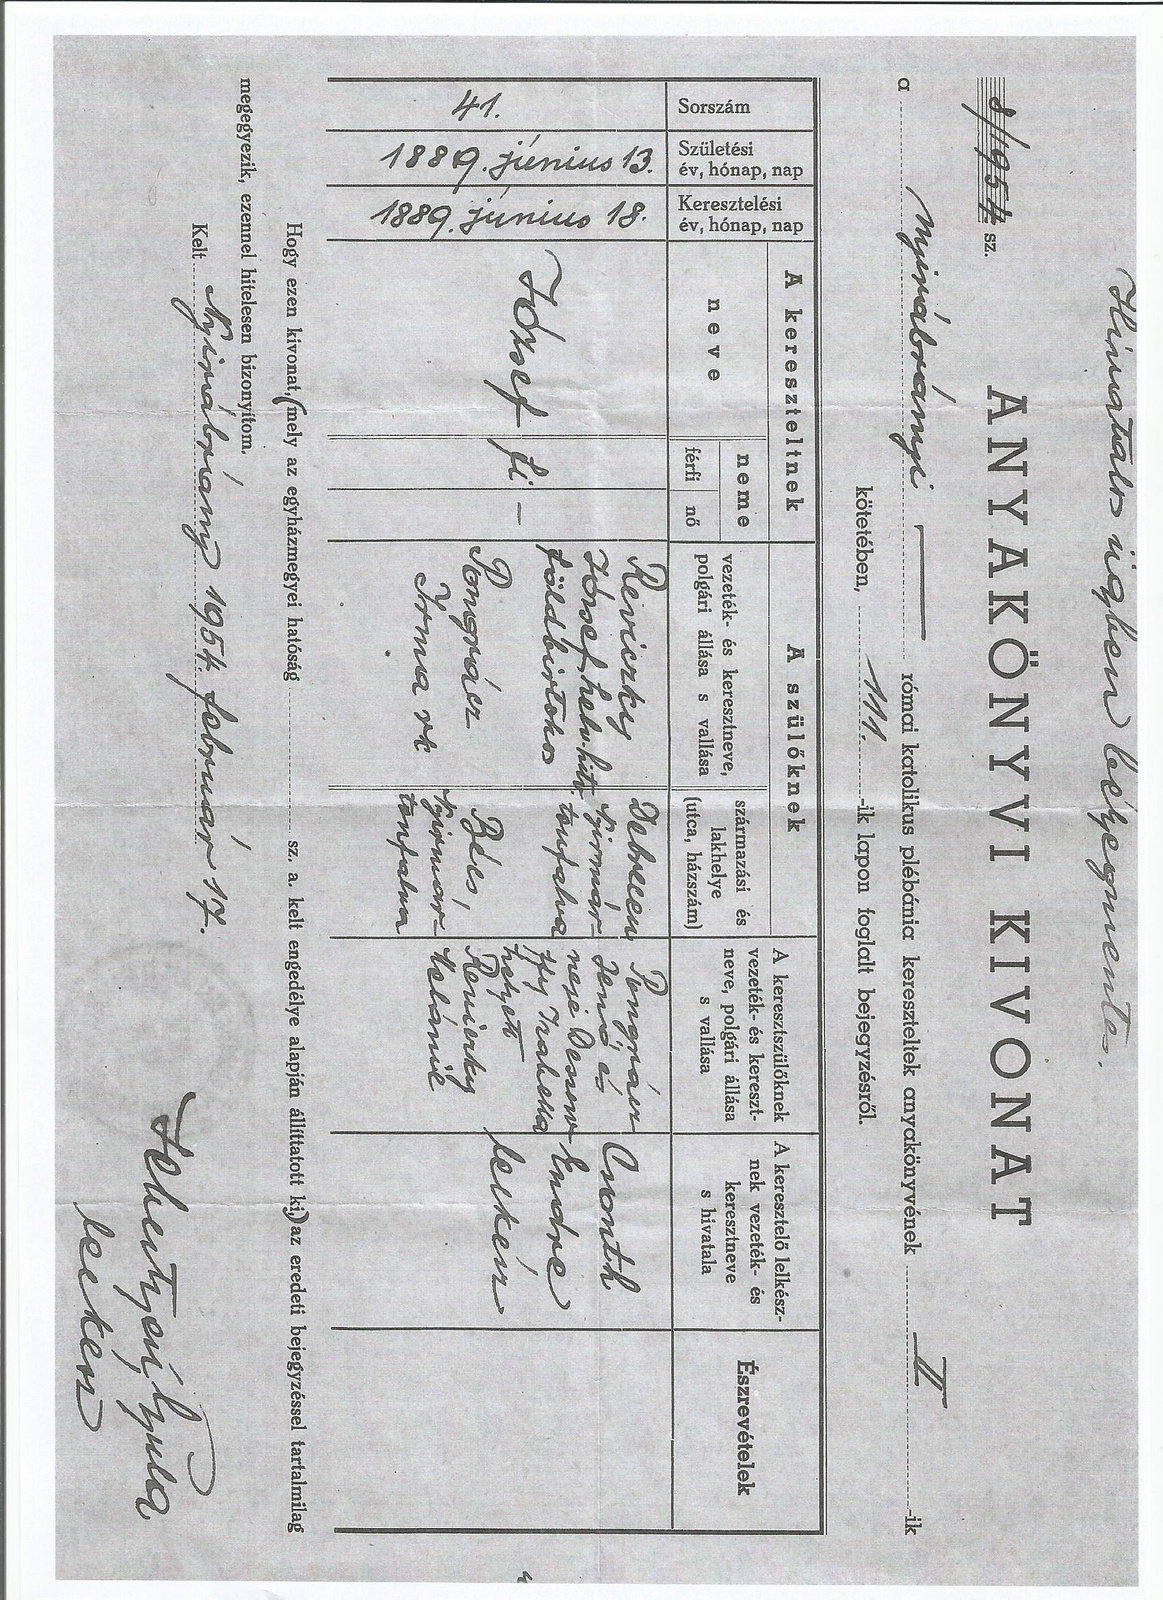 Hivatalos ügyben bélyegmentes.
8/1954 sz.
ANYAKÖNYVI KIVONAT
a Nyirábrányi római katolikus plébánia kereszteltek anyakönyvének II -ik
kötetében, 111. -ik lapon foglalt bejegyzésről.
Sorszám
Születési
év, hónap, nap
Keresztelési
év, hónap, nap
A kereszteltnek
neve
neme
férfi
nő
A szülőknek
vezeték- és keresztneve,
polgári állása s vallása
származási és
lakhelye
(utca, házszám)
A keresztszülőknek
vezeték- és kereszt-
neve, polgári állása
s vallása
A keresztelő lelkész-
nek vezeték- és
keresztneve
s hivatala
Észrevételek
41.
1889. június 13.
1889. június 18.
József
fi
–
Reviczky
József, helv. hitv.
földbirtokos
Pongrácz
Irma rk
Debrecen
Nyirmár-
tonfalva
Bécs,
Nyirmár-
tonfalva
Pongrácz
Jenő és
neje
helyett
Reviczky
Melánie
Csonth
Endre
lelkész
Hogy ezen kivonat, (mely az egyházmegyei hatóság sz. a. kelt engedélye alapján állíttatott ki,) az eredeti bejegyzéssel tartalmilag
megegyezik, ezennel hitelesen bizonyítom.
Kelt Nyirábrány 1954. február 17.
Gyula
lelkész